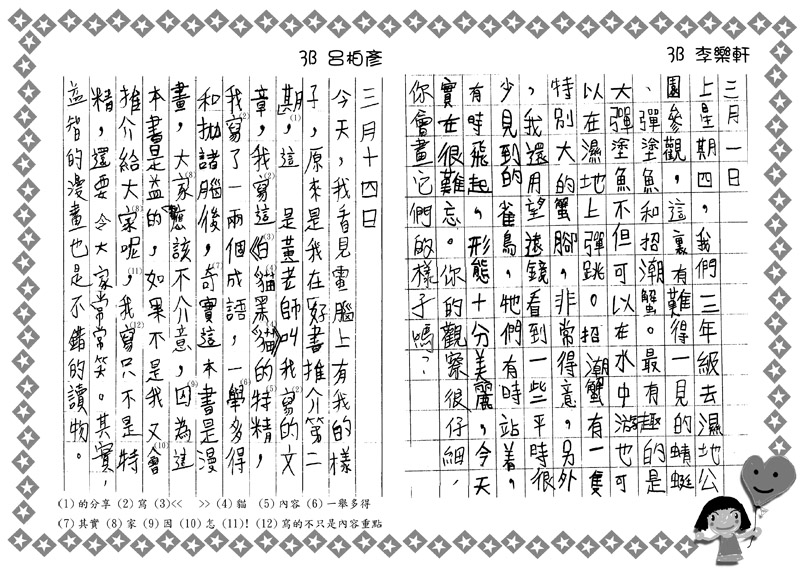 3B 李樂軒
三月一日
上星期四，我們三年級去濕地公
園參觀，這裏有難得一見的蜻蜓
、彈塗魚和招潮蟹。最有趣的是
大彈塗魚不但可以在水中游也可
以在濕地上彈跳。招潮蟹有一隻
特別大的蟹腳，非常得意，另外
，我還用望遠鏡看到一些平時很
少見到的雀鳥，牠們有時站着，
有時飛起，形態十分美麗，今天
實在很難忘。你的觀察很仔細，
你會畫它們的樣子嗎？
3B 呂柏彥
三月十四日
今天，我看見電腦上有我的樣
子，原來是我在「好書推介第二
期」(1)，這是黃老師叫我寫的文
章，我寫(2)這(3)伯貓(4)黑貓的特精(5)，
我寫(2)了一兩個成語，一學(6)多得
和拋諸腦後，奇(7)實這本書是漫
畫，大家(8)應該不介意，因(9)為這
本書是益的，如果不是我又會(10)
推介給大家(8)呢，(11)我寫(12)只不是特
精，還要令大家常常笑。其實，
益智的漫畫也是不錯的讀物。
(1) 的分享 (2) 寫 (3)<< >> (4) 貓 (5) 內容 (6) 一舉多得
(7) 其實 (8) 家 (9) 因 (10) 怎 (11)! (12) 寫的不只是內容重點